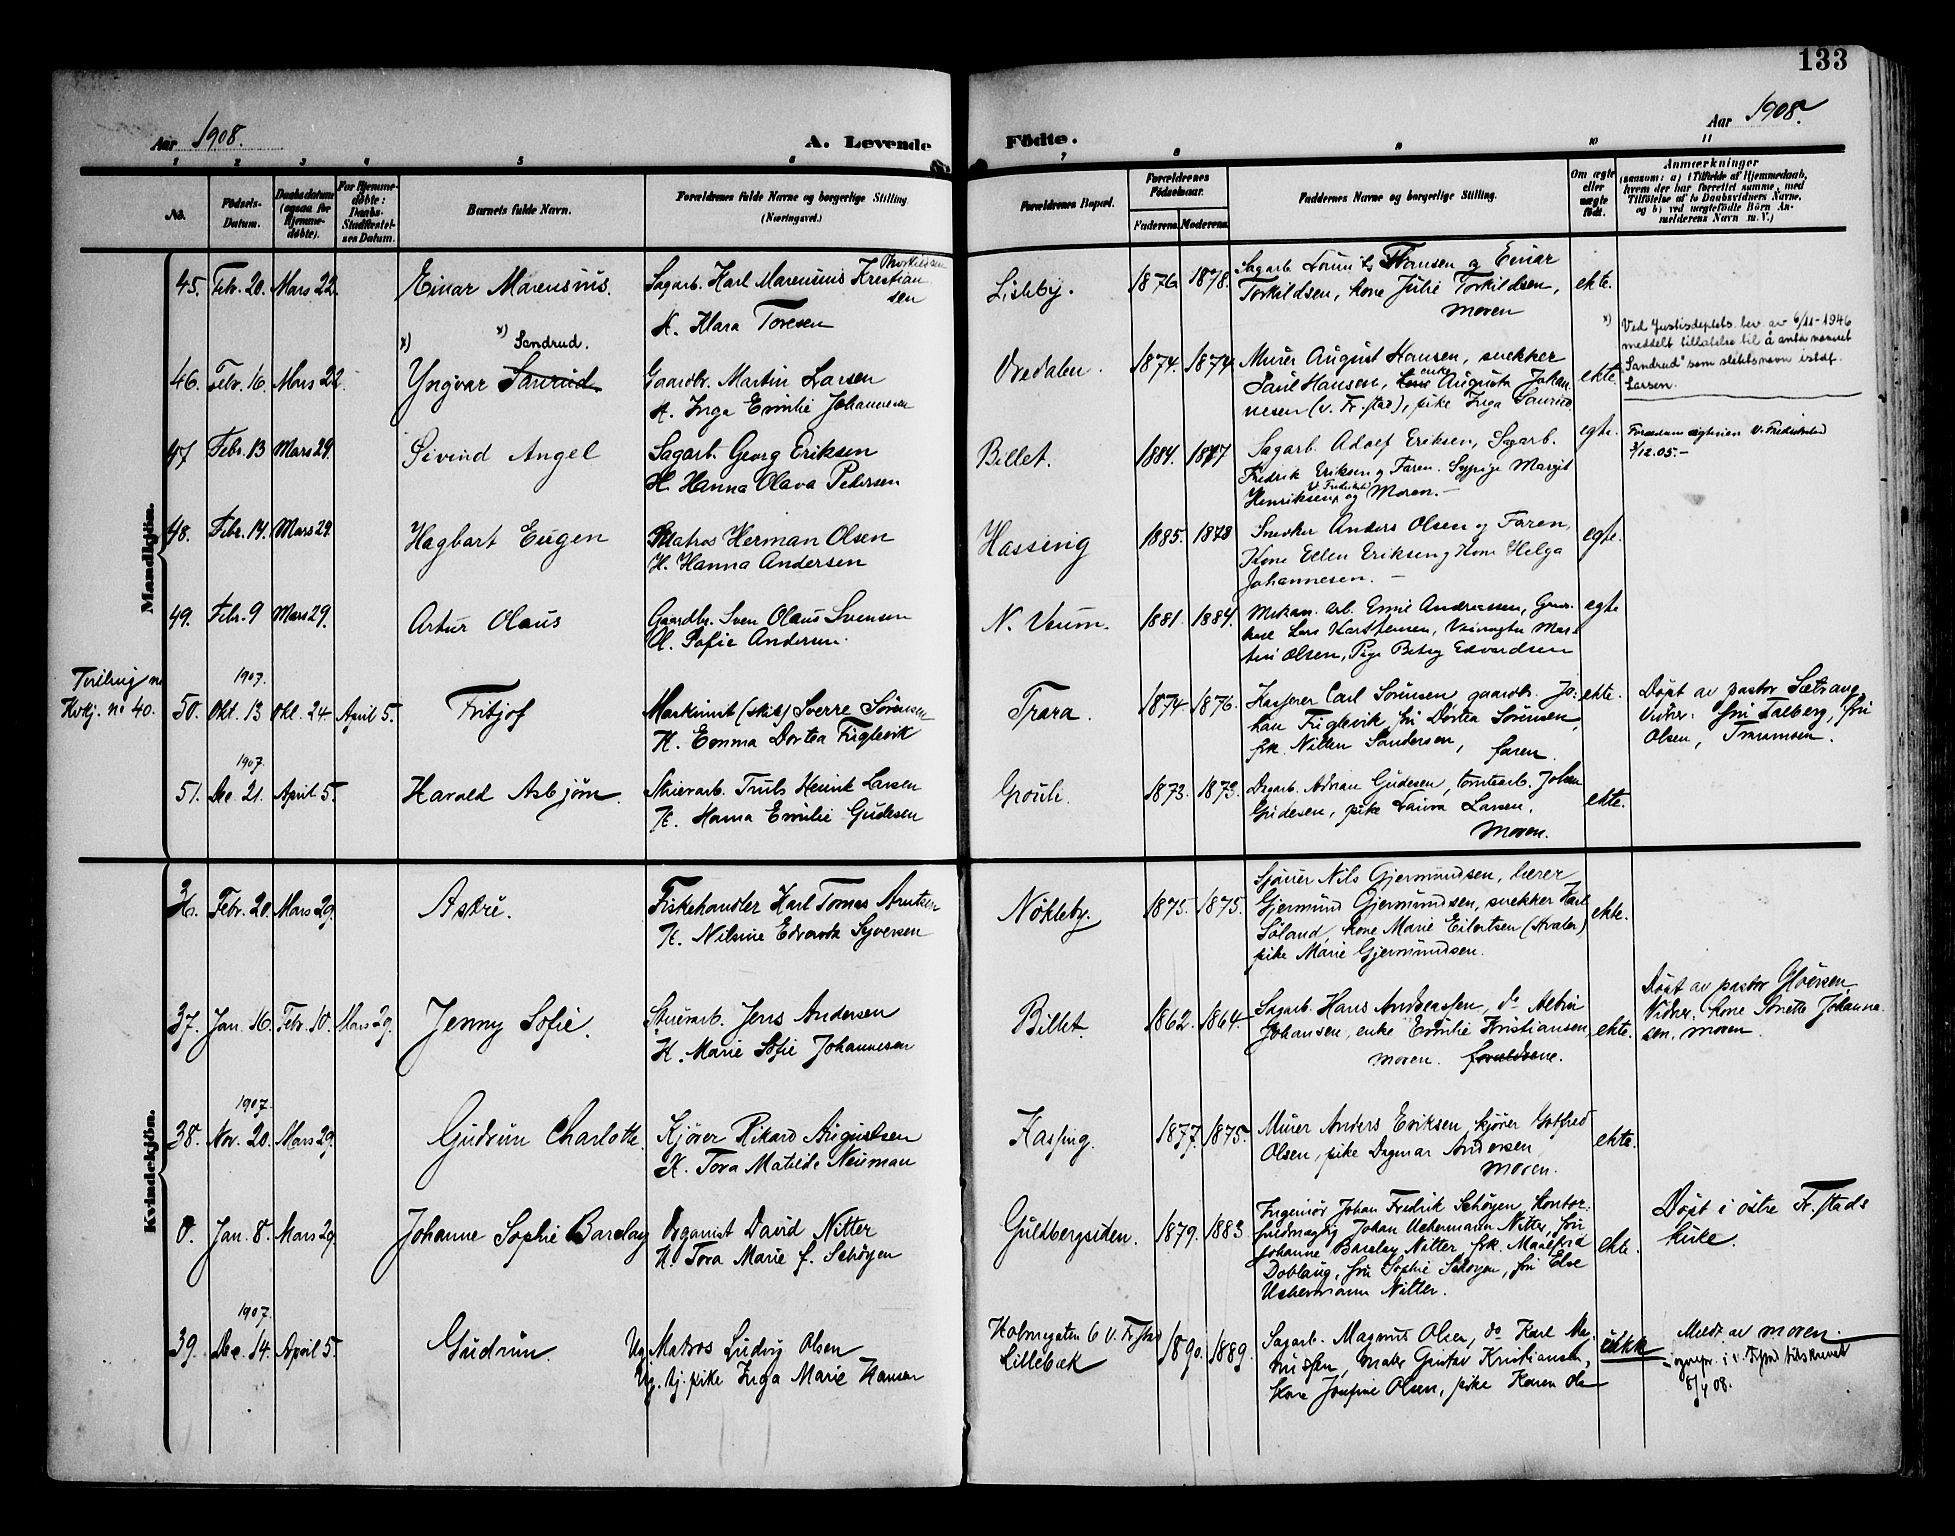 133
Aar 1908.
A. Levende
Födte.
Aar 1908.
1 2 3 4 5 6 7 8 9 10 11
No.
Födsels-Datum.
Daabsdatum (ogsaa for Hjemme-döbte).
For Hjemme-döbte: Daabs-Stadfæstel-ses Datum.
Barnets fulde Navn.
Forældrenes fulde Navne og borgerlige Stilling
(Næringsvei.)
Forældrenes Bopæl.
Forældrenes Födselsaar.
Faderens. Moderens.
Faddernes Navne og borgerlige Stilling.
Om ægte eller uægte födt.
Anmærkninger
(saasom: a) i Tilfælde af Hjemmedaab,
hvem der har forrettet samme, med
Tilföielse af to Daabsvidners Navne,
og b) ved uægtefödte Börn An-
melderens Navn m. V.)
Mandkjön.
45. Febr. 20. Mars 22. Einar Marensius. Sagarb. Karl Marensius Kristian
Thorkildsen
sen
K. Klara Toresen
Lisleby. 1876 1878. Sagarb. Hansen og Einar
Torkildsen, kone Julie Torkildsen,
moren
ekte.
x) x) Sandrud.
46. Febr. 16. Mars 22. Yngvar Saurud Gaardbr. Martin Larsen
K. Inga Emilie Johannesen
Øredalen. 1874. 1874 Murer August Hansen, snekker
Paul Hansen, kone enke Augusta Johan
nesen (v. Fr.stad), pike Inga Saurud.
ekte.
x) Ved Justisdeptets. bev. av 6/11-1946
meddelt tillatelse til å anta navnet
"Sandrud" som slektsnavn istdf.
Larsen.
47 Febr. 13 Mars 29. Øivind Angel Sagarb. Georg Eriksen
H. Hanna Olava Pedersen
Billet. 1884. 1877 Sagarb. Adolf Eriksen, Sagarb.
Fredrik Eriksen og Faren. Sypige Margit
Henriksen, V. Fredrikst. og Moren.-
egte. V. Fredrikstad
3/12.05.-
48. Febr. 14. Mars 29 Hagbart Eugen Matros Herman Olsen
H. Hanna Andersen
Hassing 1885. 1878 Snedker Anders Olsen og Faren,
Kone Ellen Eriksen og Kone Helga
Johannesen. -
egte.
49. Febr. 9 Mars 29. Artur Olaus Gaardbr. Sven Olaus Svensen
H. Sofie Andersen.
N. Veum. 1881. 1884. Mekan. arb. Emil Andreassen,
Lars Karstensen, Mar-
tin Olsen, Pige Betsy Edvardsen
egte
Tvilling m
Kvkj. no 40.
1907.
50. Okt. 13 Okt. 24 April 5. Fritjof Maskinist (skib) Sverre Sörensen
K. Emma Dortea Fuglevik
Trara. 1874 1876. Kasserer Carl Sörensen gaardbr. Jo-
han Fuglevik fru Dortea Sörensen,
frk. Nilken Sandersen, faren.
ekte. Döpt av pastor Sætrang
Vidner: fru Talberg, fru
Olsen,
1907
51. De 21. April 5. Harald Asbjørn. Stuerarb. Truls Henrik Larsen
K. Hanna Emilie Gudesen
1873. 1873. Dagarb. Adrian Gudesen, tomtearb. Johan
Gudesen, pike Laura Larsen.
moren.
ekte.
Kvindekjön.
36. Febr. 20. Mars 29. Astri. Fiskehandler Karl Tomas Arntsen
K. Nilsine Edvarda Syversen
Nökleby. 1875. 1875. Sjörer Nils Gjermundsen, lærer
Gjermund Gjermundsen, snekker Karl
Söland, kone Marie Eilertsen (Hvaler)
pike Marie Gjermundsen.
ekte.
37. Jan. 16. Febr. 10. Mars 29. Jenny Sofie. Stuerarb. Jens Andersen
K. Marie Sofie Johannesen
Billet 1862. 1864. Sagarb. Hans Andreassen, do Albin
Johansen, enke Emilie Kristiansen,
moren. foreldrene.
ekte. Döpt av pastor Gløersen,
Vidner. kone Lorette Johanne
sen, moren.
1907.
38. Nov. 20. Mars 29. Gudrun Charlotte. Kjörer Rikard Augustsen
K. Tora Matilde Neuman
Hassing. 1877. 1875. Murer Anders Eriksen, kjörer Gotfred
Olsen, pike Dagmar Andersen
moren.
ekte.
0. Jan. 8. Mars 29 Johanne Sophie Barclay Organist David Nitter
K. Tora Marie f. Schøyen
Guldbergsiden. 1879. 1883. Ingeniör Johan Fredrik Schøyen, kontor-
fuldmægtig Johan Uchermann Nitter, fru
Johanne Barclay Nitter, frk. Maalfrid
Doblaug, fru Sophie Schøyen, fru Else
Uchermann Nitter.
ekte. Döpt i östre Fr.stads
kirke.
1907.
39. De. 14. April 5. Gudrun. Ug. Matros Ludvig Olsen
Ug. tj. pike Inga Marie Hansen
Holmegaten 6 v. Fr.stad
Lillebæk 1890. 1889. Sagarb. Magnus Olsen, do Karl Mag-
nussen, maler Gustav Kristiansen,
kone Josefine Olsen, pike Karen Ols
uekte Meldt av moren.
8/4 08.